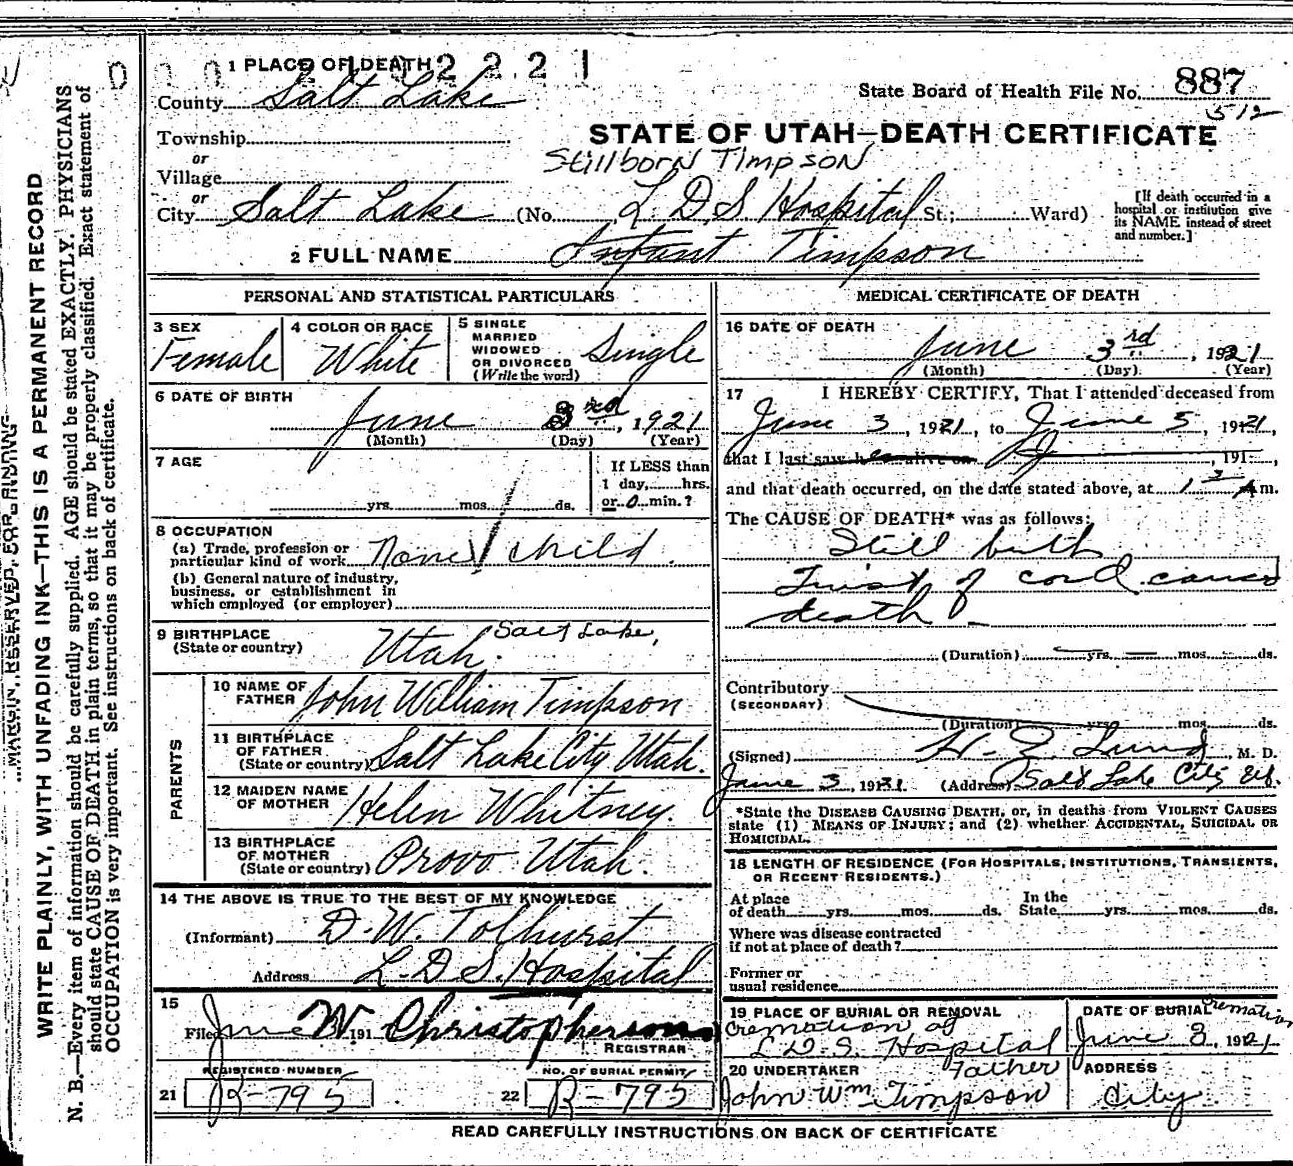 1 PLACE OF DEATH 2221
County Salt Lake
State Board of Health File No. 887
512
Township
STATE OF UTAH—DEATH CERTIFICATE
or
Stillborn Timpson
Village
or
City Salt Lake (No. L.D.S. Hospital St.; Ward)
[If death occurred in a hospital or institution give its NAME instead of street and number.]
2 FULL NAME Infant Timpson
PERSONAL AND STATISTICAL PARTICULARS
3 SEX Female
4 COLOR OR RACE White
5 SINGLE MARRIED WIDOWED OR DIVORCED (Write the word) Single
6 DATE OF BIRTH
June 1921
(Month) (Day) (Year)
7 AGE
yrs. mos. ds.
If LESS than
1 day, hrs.
or 0 min.?
8 OCCUPATION
(a) Trade, profession or
particular kind of work None child
(b) General nature of industry,
business, or establishment in
which employed (or employer)
9 BIRTHPLACE
(State or country) Utah. Salt Lake,
PARENTS
10 NAME OF FATHER John William Timpson
11 BIRTHPLACE OF FATHER
(State or country) Salt Lake City Utah.
12 MAIDEN NAME OF MOTHER Helen Whitney.
13 BIRTHPLACE OF MOTHER
(State or country) Provo Utah.
14 THE ABOVE IS TRUE TO THE BEST OF MY KNOWLEDGE
(Informant) D.W. Tolhurst
Address L.D.S. Hospital
15
Filed June 191 W. Christopherson
REGISTRAR
REGISTERED NUMBER
21 R-795
NO. OF BURIAL PERMIT
22 R-795
MEDICAL CERTIFICATE OF DEATH
16 DATE OF DEATH
June 3rd, 1921
(Month) (Day) (Year)
17 I HEREBY CERTIFY, That I attended deceased from
June 3, 1921, to June 5, 1921,
that I last saw h alive on , 191 ,
and that death occurred, on the date stated above, at A m.
The CAUSE OF DEATH* was as follows:
Still birth
Twist of cord caused
death
(Duration) yrs. mos. ds.
Contributory
(SECONDARY)
(Duration) yrs. mos. ds.
(Signed) Lund, M. D.
June 3, 1921. (Address) Salt Lake City Ut.
*State the DISEASE CAUSING DEATH, or, in deaths from VIOLENT CAUSES
state (1) MEANS OF INJURY; and (2) whether ACCIDENTAL, SUICIDAL OR
HOMICIDAL.
18 LENGTH OF RESIDENCE (FOR HOSPITALS, INSTITUTIONS, TRANSIENTS,
OR RECENT RESIDENTS.)
At place
of death yrs. mos. ds.
In the
State yrs. mos. ds.
Where was disease contracted
if not at place of death?
Former or
usual residence
19 PLACE OF BURIAL OR REMOVAL
Cremation at
L.D.S. Hospital
DATE OF BURIAL Cremation
June 3, 1921
20 UNDERTAKER Father
John Wm Timpson
ADDRESS
City
READ CAREFULLY INSTRUCTIONS ON BACK OF CERTIFICATE
MARGIN RESERVED FOR BINDING
WRITE PLAINLY, WITH UNFADING INK—THIS IS A PERMANENT RECORD
N. B.—Every item of information should be carefully supplied. AGE should be stated EXACTLY. PHYSICIANS
should state CAUSE OF DEATH in plain terms, so that it may be properly classified. Exact statement of
OCCUPATION is very important. See instructions on back of certificate.